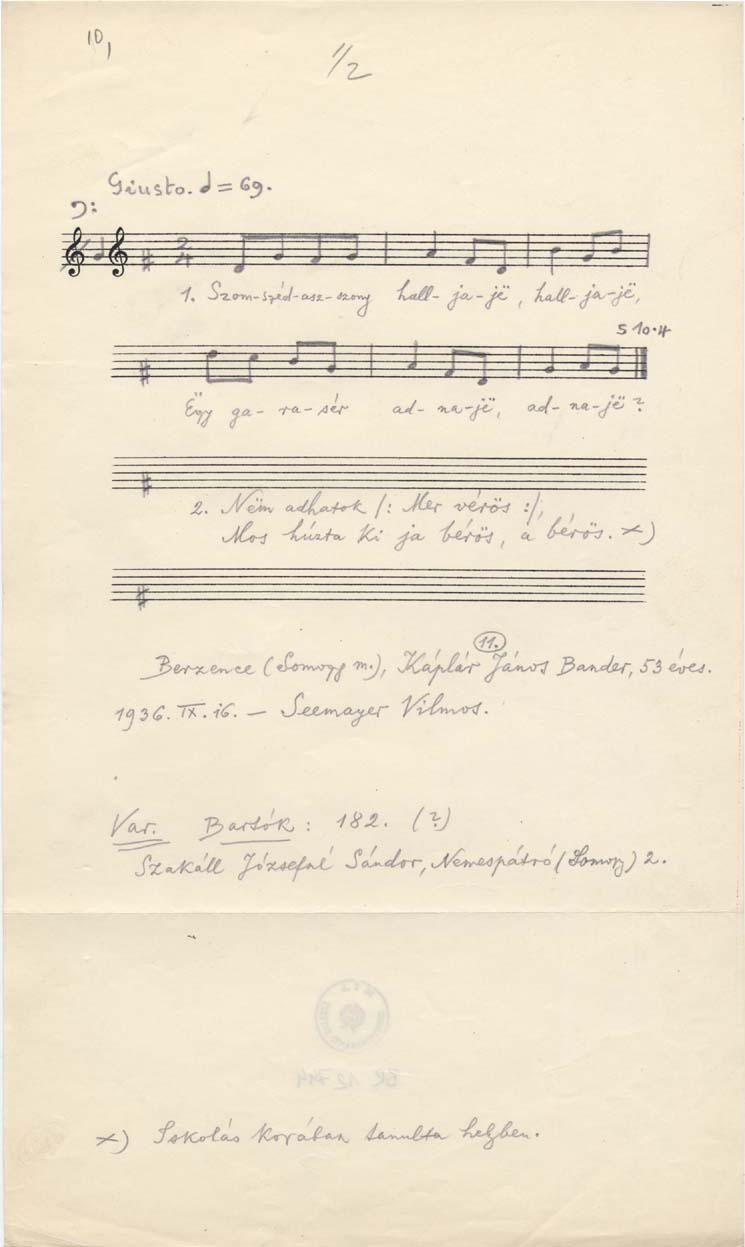 10,
1/2
Giusto. d = 69.
2
4
1. Szom-széd-asz-szony hall-ja-jë, hall-ja-jë,
5 10·4
Ëgy ga-ra-sér ad-na-jë, ad-na-jë?
2. Nëm adhatok /: Mer vérös :/,
Mos húzta ki ja bérös, a bérös. x)
Berzence (Somogy m.), Káplár János Bander, 53 éves.
11.
1936. IX. 16. — Seemayer Vilmos.
Var. Bartók: 182. (?)
Szakáll Józsefné Sándor, Nemespátró (Somogy) 2.
x) Iskolás korában tanulta helyben.